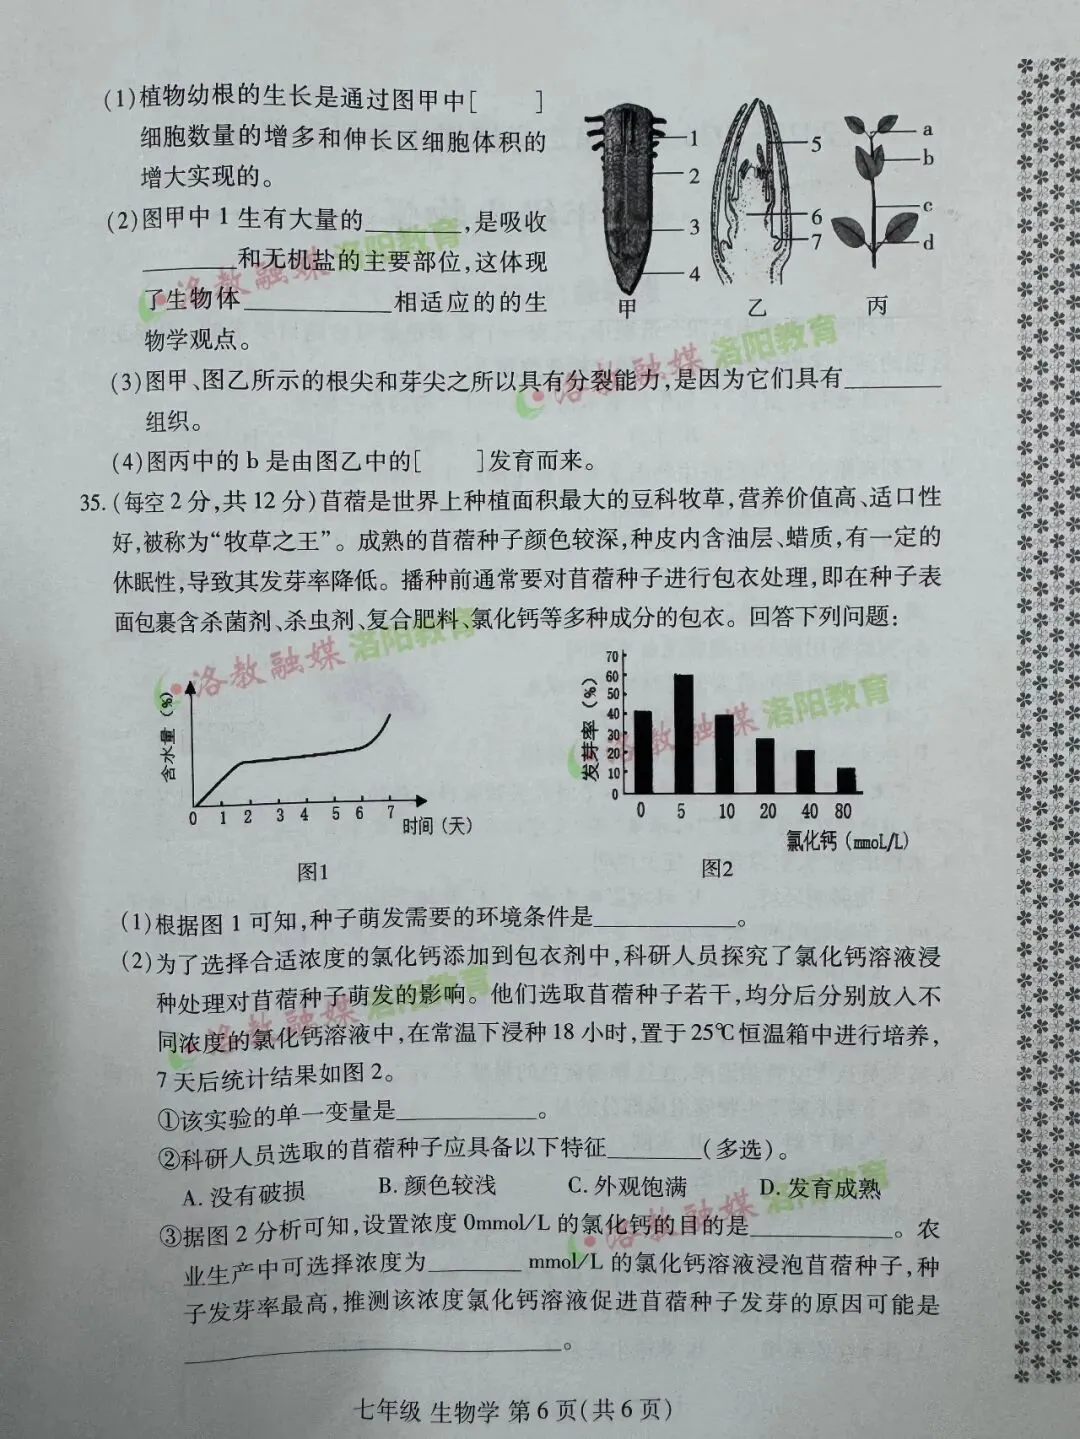 (1)植物幼根的生长是通过图甲中[ ]
细胞数量的增多和伸长区细胞体积的
增大实现的。
(2)图甲中1生有大量的________,是吸收
________和无机盐的主要部位,这体现
了生物体____________相适应的的生
物学观点。
1
2
3
4
甲
5
6
7
乙
a
b
c
d
丙
(3)图甲、图乙所示的根尖和芽尖之所以具有分裂能力,是因为它们具有________
组织。
(4)图丙中的b是由图乙中的[ ]发育而来。
35.(每空2分,共12分)苜蓿是世界上种植面积最大的豆科牧草,营养价值高、适口性
好,被称为“牧草之王”。成熟的苜蓿种子颜色较深,种皮内含油层、蜡质,有一定的
休眠性,导致其发芽率降低。播种前通常要对苜蓿种子进行包衣处理,即在种子表
面包裹含杀菌剂、杀虫剂、复合肥料、氯化钙等多种成分的包衣。回答下列问题:
含水量(%)
0 1 2 3 4 5 6 7
时间(天)
图1
发芽率(%)
70
60
50
40
30
20
10
0
0 5 10 20 40 80
氯化钙(mmoL/L)
图2
(1)根据图1可知,种子萌发需要的环境条件是____________。
(2)为了选择合适浓度的氯化钙添加到包衣剂中,科研人员探究了氯化钙溶液浸
种处理对苜蓿种子萌发的影响。他们选取苜蓿种子若干,均分后分别放入不
同浓度的氯化钙溶液中,在常温下浸种18小时,置于25℃恒温箱中进行培养,
7天后统计结果如图2。
①该实验的单一变量是____________。
②科研人员选取的苜蓿种子应具备以下特征________(多选)。
A. 没有破损 B. 颜色较浅 C. 外观饱满 D. 发育成熟
③据图2分析可知,设置浓度0mmol/L的氯化钙的目的是____________。农
业生产中可选择浓度为________mmol/L的氯化钙溶液浸泡苜蓿种子,种
子发芽率最高,推测该浓度氯化钙溶液促进苜蓿种子发芽的原因可能是
________________________________。
七年级 生物学 第6页(共6页)
洛教融媒 洛阳教育
洛教融媒 洛阳教育
洛教融媒 洛阳教育
洛教融媒 洛阳教育
洛教融媒 洛阳教育
洛教融媒 洛阳教育